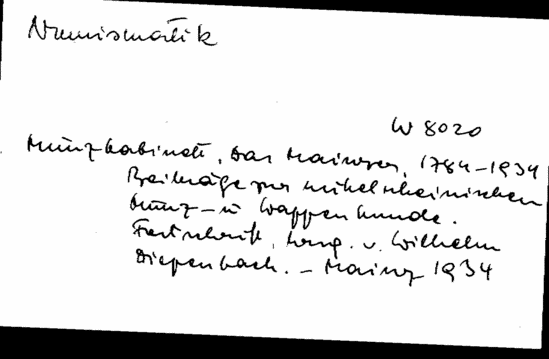 Numismatik
W 8020
Münzkabinett, Das Mainzer, 1784-1934
Beiträge zur mittelrheinischen
Münz- u Wappenkunde.
Festschrift, hrsg. v. Wilhelm
Diepenbach. - Mainz 1934